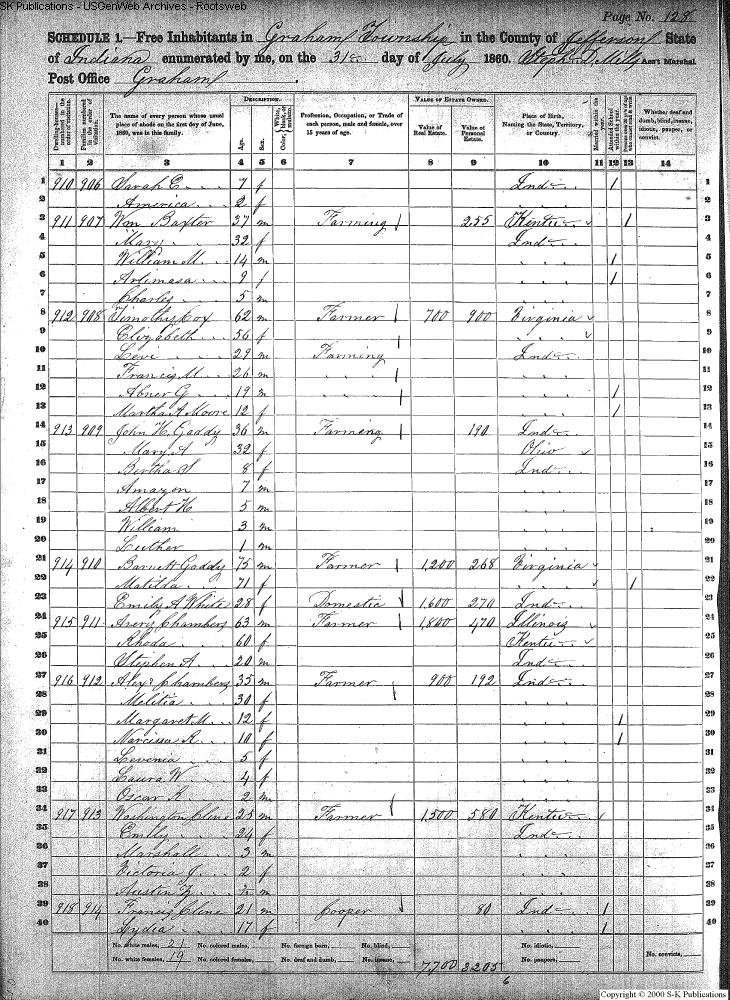 SK Publications - USGenWeb Archives - Rootsweb
Page No. 128
SCHEDULE 1.—Free Inhabitants in Graham Township in the County of Jefferson State
of Indiana enumerated by me, on the 31st day of July 1860. Ass't Marshal
Post Office Graham
DESCRIPTION. VALUE OF ESTATE OWNED.
Dwelling-houses numbered in the order of visitation. Families numbered in the order of visitation. The name of every person whose usual place of abode on the first day of June, 1860, was in this family. Age. Sex. Color, White, black, or mulatto. Profession, Occupation, or Trade of each person, male and female, over 15 years of age. Value of Real Estate. Value of Personal Estate. Place of Birth, Naming the State, Territory, or Country. Married within the year. Attended School within the year. Whether deaf and dumb, blind, insane, idiotic, pauper, or convict.
1 2 3 4 5 6 7 8 9 10 11 12 13 14
1 910 906 Sarah E. 7 f Ind / 1
2 America 2 f 2
3 911 907 Wm Baxter 37 m Farming / 255 Kentuc / 3
4 Mary 32 f Ind 4
5 William M. 14 m / 5
6 Artimasa 9 f / 6
7 Charles 5 m 7
8 912 908 Timothy Cox 62 m Farmer / 700 900 Virginia 8
9 Elizabeth 56 f 9
10 Levi 29 m Farming / Ind 10
11 Francis M. 26 m " " / 11
12 Abner G 19 m / / 12
13 Martha A Moore 12 f / 13
14 913 909 John H. Gaddy 36 m Farming / 190 Ind 14
15 Mary A 32 f Ohio 15
16 Bertha S 8 f Ind 16
17 Amazon 7 m 17
18 Albert H 5 m 18
19 William 3 m 19
20 Luther 1 m 20
21 914 910 Barnett Gaddy 75 m Farmer / 1,200 268 Virginia 21
22 Matilda 71 f / 22
23 Emily A White 28 f Domestic 1,600 270 Ind 23
24 915 911 Avery Chambers 63 m Farmer / 1,800 470 Illinois 24
25 Rhoda 60 f Kentuc 25
26 Stephen A. 20 m Ind 26
27 916 912 Alexr Chambers 35 m Farmer / 900 192 Ind 27
28 Melitia 30 f 28
29 Margaret M. 12 f / 29
30 Narcissa R. 10 f / 30
31 Levenia 5 f 31
32 Laura W 4 f 32
33 Oscar K. 2 m 33
34 917 913 Washington Cline 25 m Farmer / 1,500 580 Kentuc 34
35 Emily 24 f Ind 35
36 Marshall 3 m 36
37 Victoria J. 2 f 37
38 Austin m 38
39 918 914 Francis Cline 21 m Cooper 80 Ind / 39
40 Lydia 17 f / 40
No. white males, 21 No. colored males, No. foreign born, No. blind, No. idiotic,
No. white females, 19 No. colored females, No. deaf and dumb, No. insane, 7,700 3205 No. paupers, No. convicts,
6
Copyright © 2000 S-K Publications